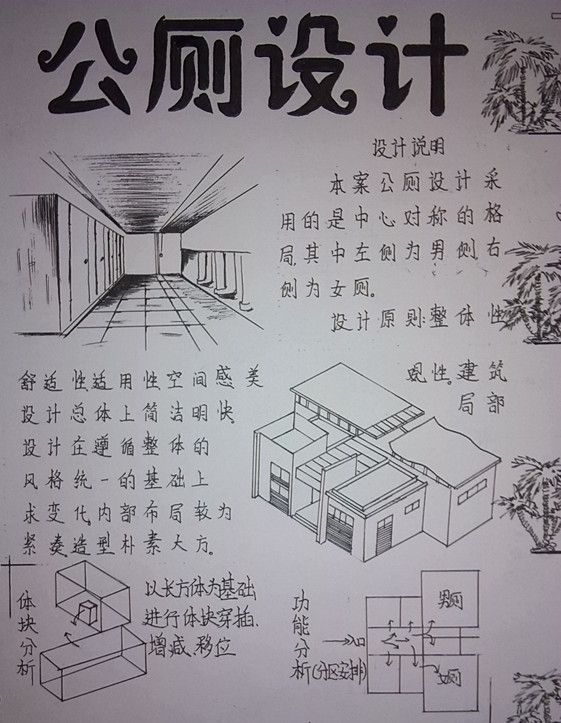 公厕设计
设计说明
本案公厕设计采
用的是中心对称的格
局,其中左侧为男侧,右
侧为女厕。
设计原则:整体性
舒适性,适用性,空间感,美
观性。建筑
设计总体上简洁明快
局部
设计在遵循整体的
风格统一的基础上
求变化,内部布局较为
紧奏,造型朴素大方。
体块分析
以长方体为基础
进行体块穿插,
增减、移位
功能分析(分区安排)
入口
男厕
女厕